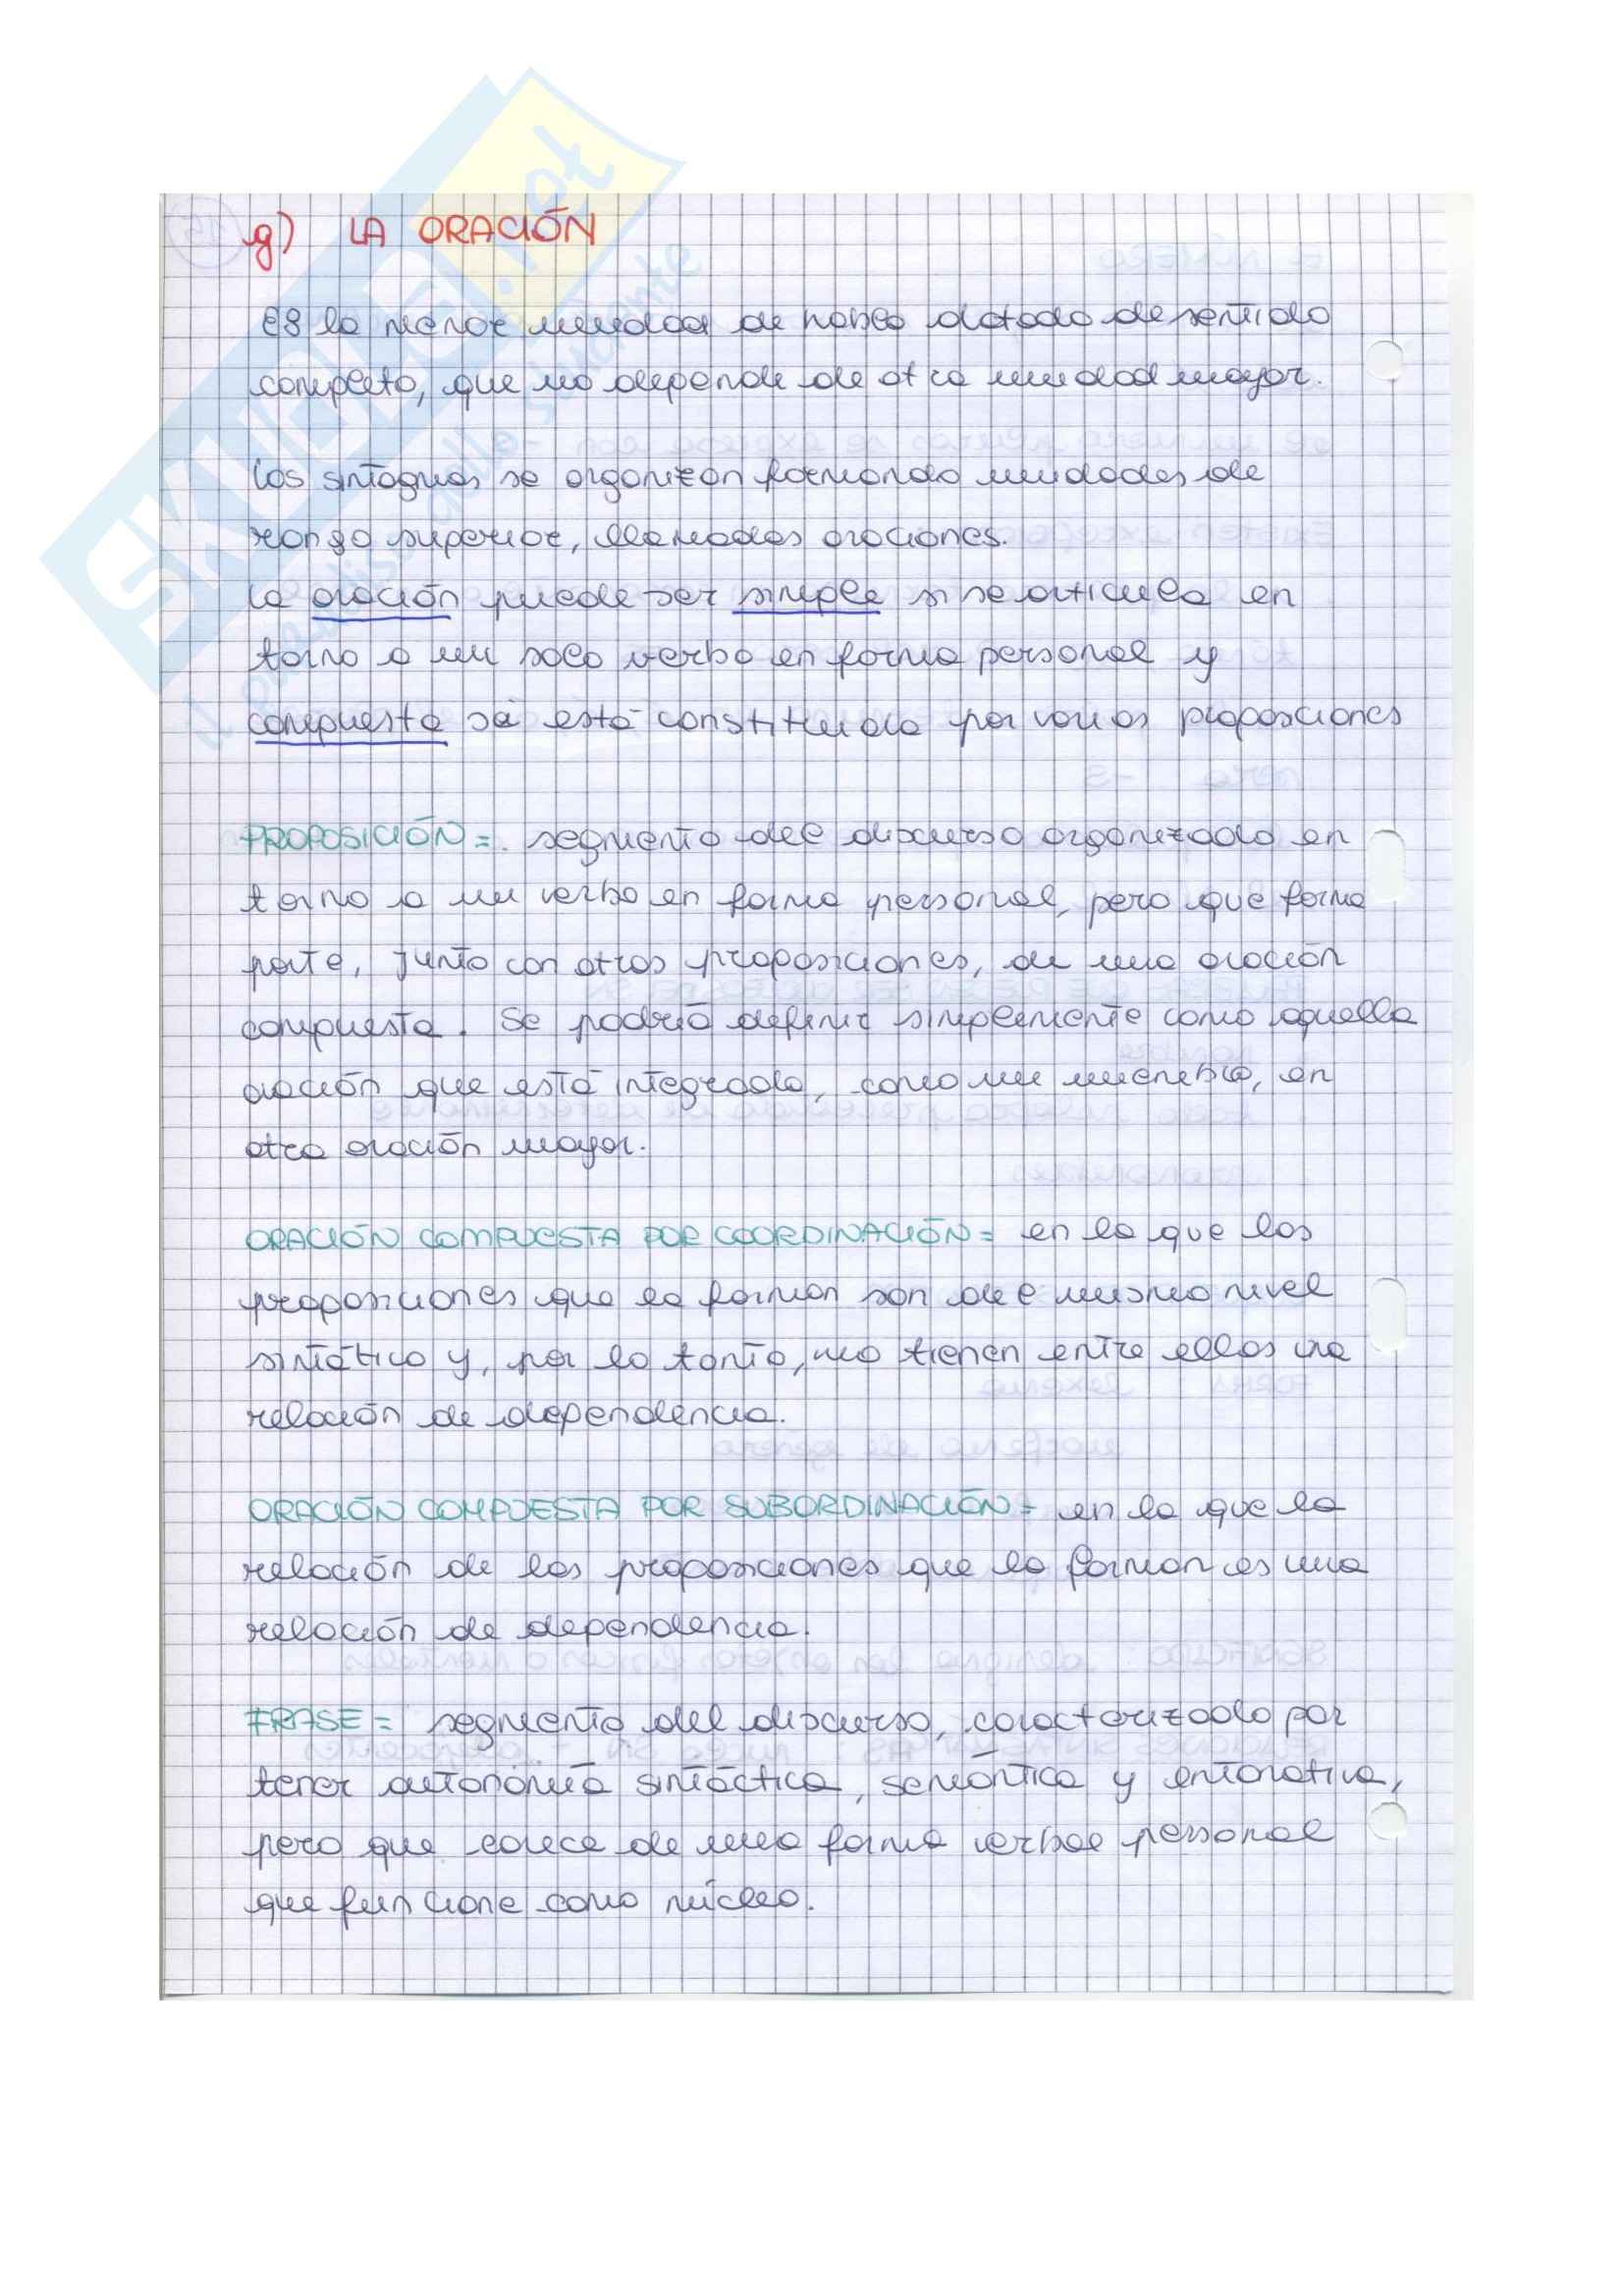 g) LA ORACIÓN
Es la menor unidad de habla dotada de sentido
completo, que no depende de otra unidad mayor.
Los sintagmas se organizan formando unidades de
rango superior, llamadas oraciones.
La oración puede ser simple si se articula en
torno a un solo verbo en forma personal y
compuesta si está constituida por varias proposiciones
PROPOSICIÓN = segmento del discurso organizado en
torno a un verbo en forma personal, pero que forma
parte, junto con otras proposiciones, de una oración
compuesta. Se podría definir simplemente como aquella
oración que está integrada, como un miembro, en
otra oración mayor.
ORACIÓN COMPUESTA POR COORDINACIÓN = en la que las
proposiciones que la forman son del mismo nivel
sintático y, por lo tanto, no tienen entre ellas una
relación de dependencia.
ORACIÓN COMPUESTA POR SUBORDINACIÓN = en la que la
relación de las proposiciones que la forman es una
relación de dependencia.
FRASE = segmento del discurso, caracterizado por
tener autonomía sintáctica, semántica y entonativa,
pero que carece de una forma verbal personal
que funcione como núcleo.
SKUOLA.net
il paradiso dello studente